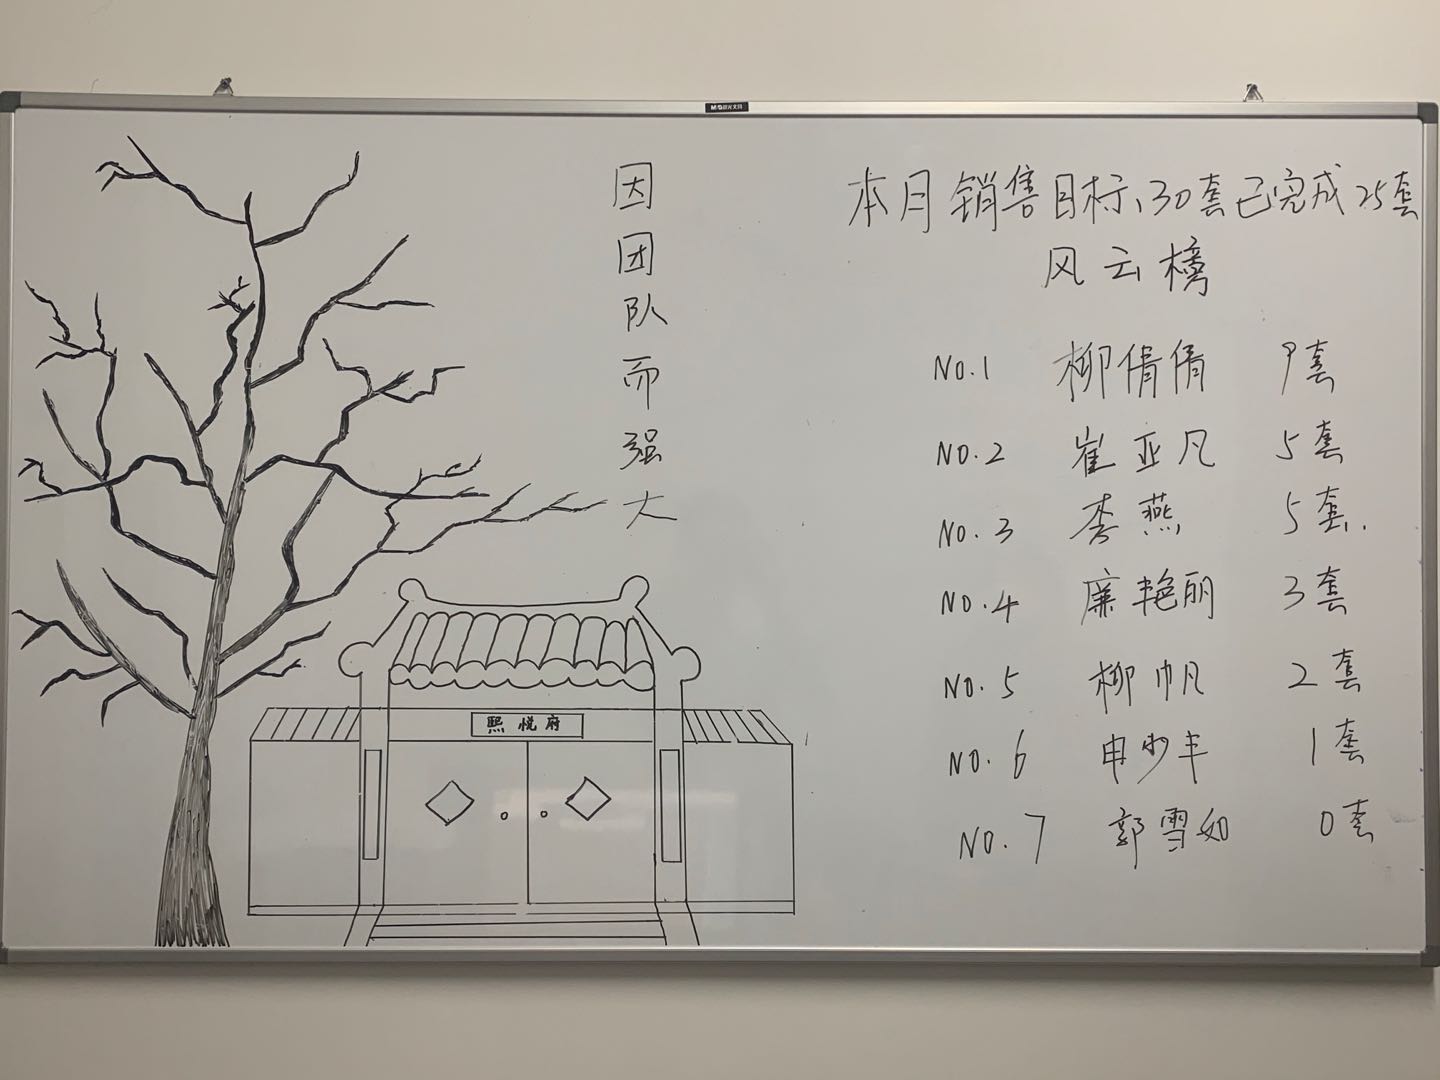 M&G晨光文具
因
团
队
而
强
大
本月销售目标、30套已完成25套
风云榜
NO.1 柳倩倩 9套
NO.2 崔亚凡 5套
NO.3 李燕 5套.
NO.4 廉艳丽 3套
NO.5 柳帆 2套
NO.6 申少丰 1套
NO.7 郭雪如 0套
熙悦府